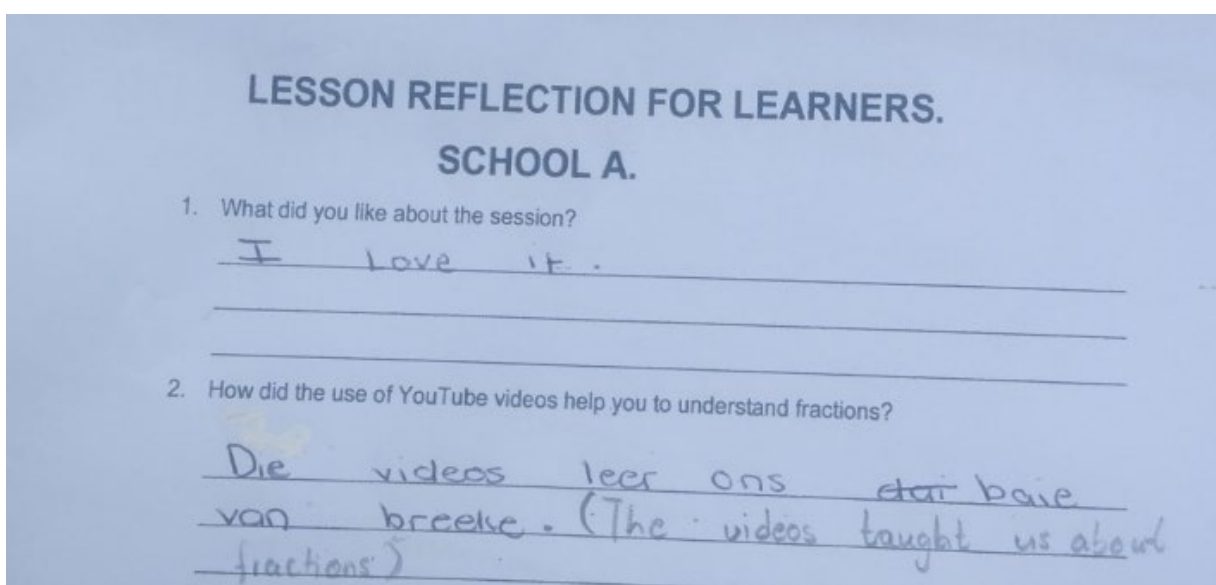 LESSON REFLECTION FOR LEARNERS.
SCHOOL A.
1. What did you like about the session?
I Love it.
2. How did the use of YouTube videos help you to understand fractions?
Die videos leer ons baie
van breeke. (The videos taught us about
fractions)